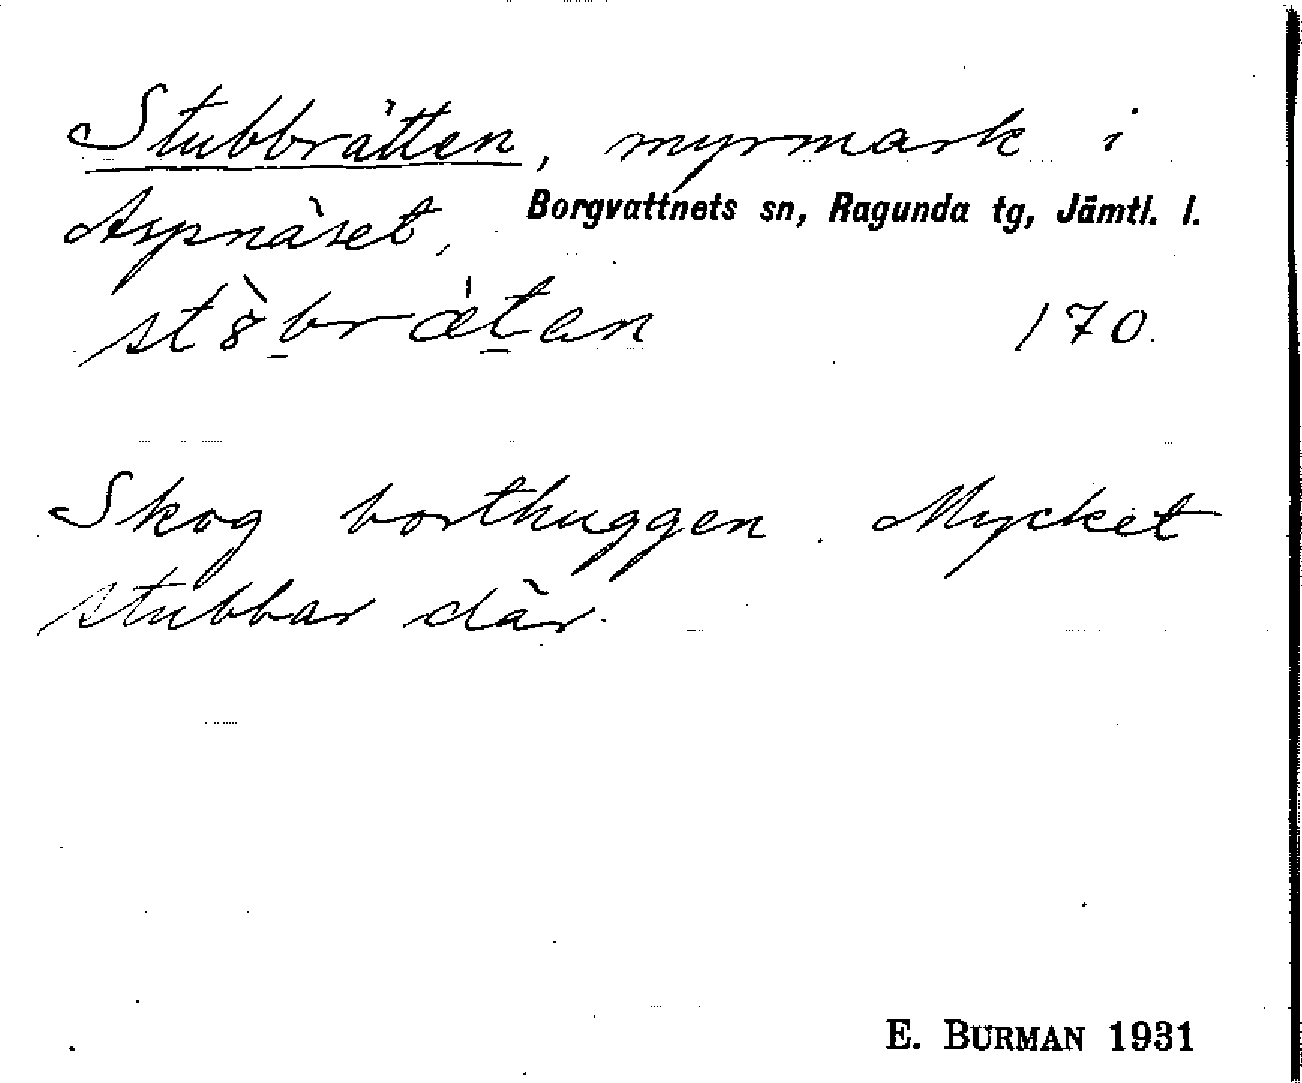 Stubbrätten, myrmark i
Aspnäset, Borgvattnets sn, Ragunda tg, Jämtl. l.
170.
Skog borthuggen. Mycket
stubbar där.
E. BURMAN 1931